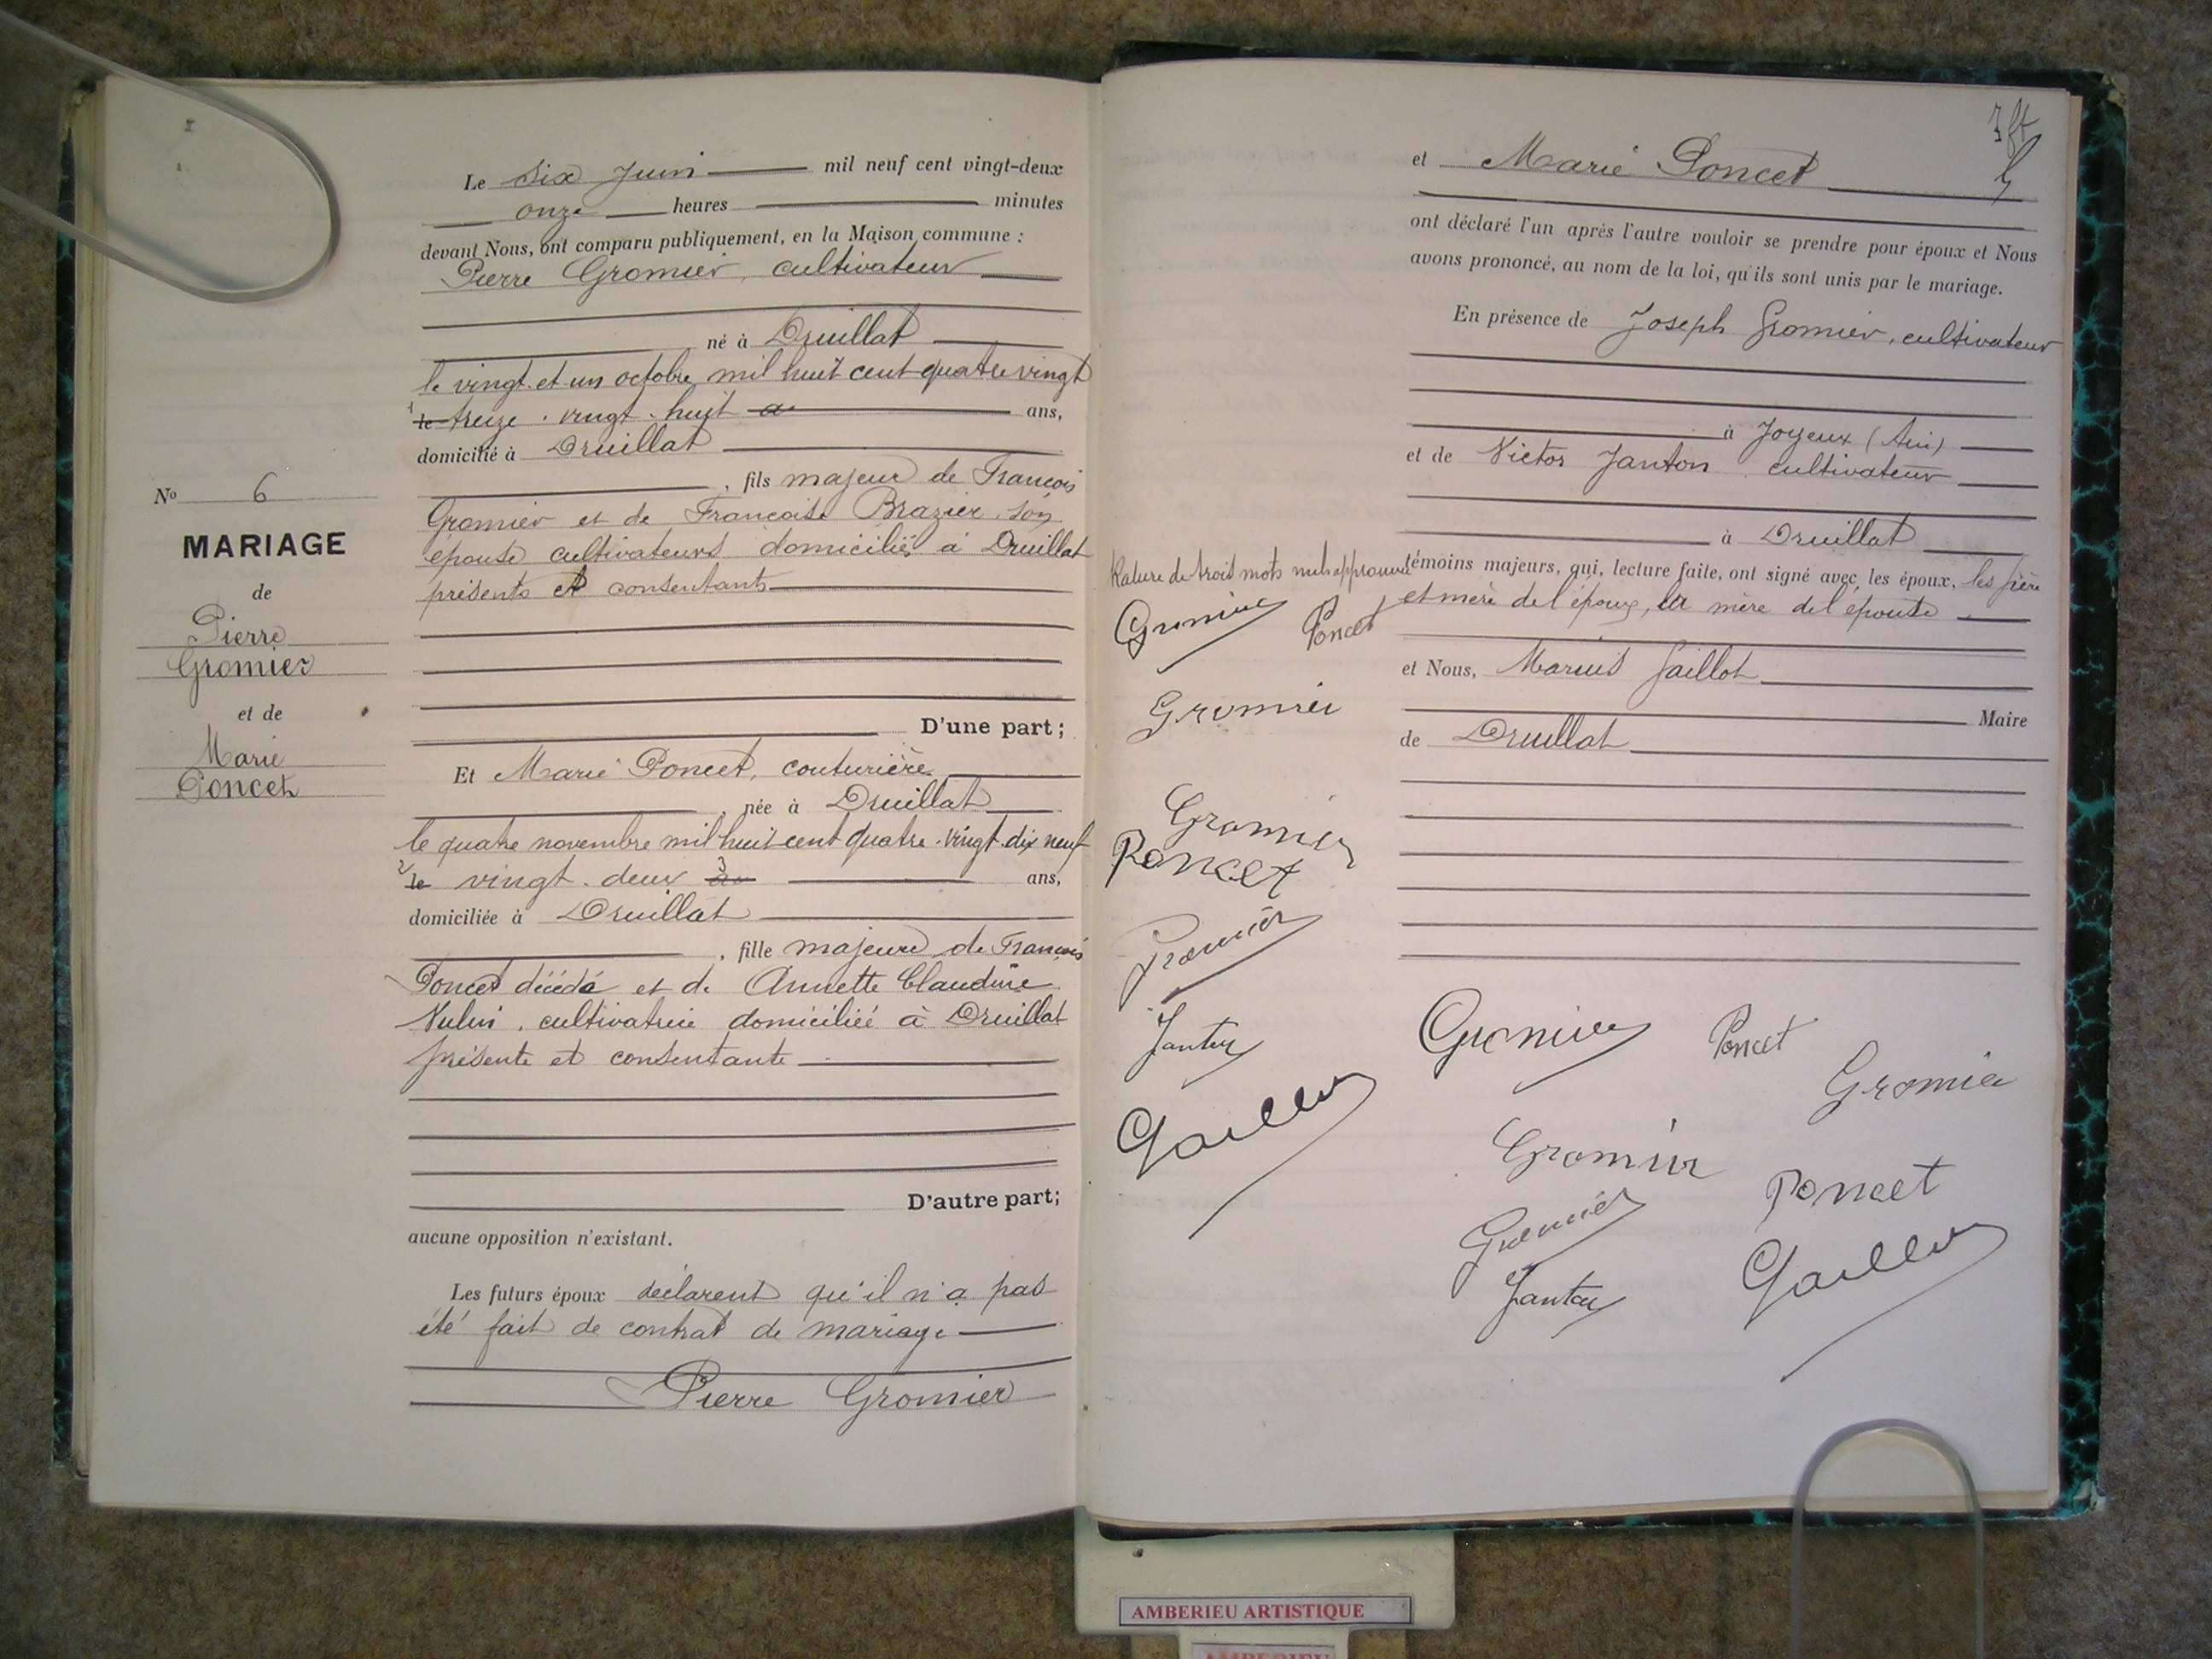 Le six Juin mil neuf cent vingt-deux
onze heures minutes
devant Nous, ont comparu publiquement, en la Maison commune :
Pierre Gromier, cultivateur
né à Druillat
le vingt et un octobre mil huit cent quatre vingt
le treize . vingt . huit a ans,
domicilié à Druillat
, fils majeur de François
Gromier et de Françoise Brazier, son
épouse cultivateurs domiciliés à Druillat
présents et consentants
D'une part ;
No 6
MARIAGE
de
Pierre
Gromier
et de
Marie
Poncet
Et Marie Poncet, couturière
, née à Druillat
le quatre novembre mil huit cent quatre . vingt . dix neuf
le vingt . deux ans,
domiciliée à Druillat
, fille majeure de François
Poncet décédé et de Annette Claudine
cultivatrice domiciliée à Druillat
présente et consentante
D'autre part;
aucune opposition n'existant.
Les futurs époux déclarent qu'il n'a pas
été fait de contrat de mariage
Pierre Gromier
et Marie Poncet
ont déclaré l'un après l'autre vouloir se prendre pour époux et Nous
avons prononcé, au nom de la loi, qu'ils sont unis par le mariage.
En présence de Joseph Gromier, cultivateur
à Joyeux (Ain)
et de Victor Janton cultivateur
à Druillat
témoins majeurs, qui, lecture faite, ont signé avec les époux, les père
et mère de l'époux, la mère de l'épouse
et Nous, Marius Gaillot
Maire
de Druillat
Rature de trois mots nuls approuvé
Gromier Poncet
Gromier
Gromier
Poncet
Gromier
Janton
Gaillot
Gromier Poncet
Gromier
Gromier
Poncet
Gromier
Janton
Gaillot
AMBERIEU ARTISTIQUE
AMBERIEU